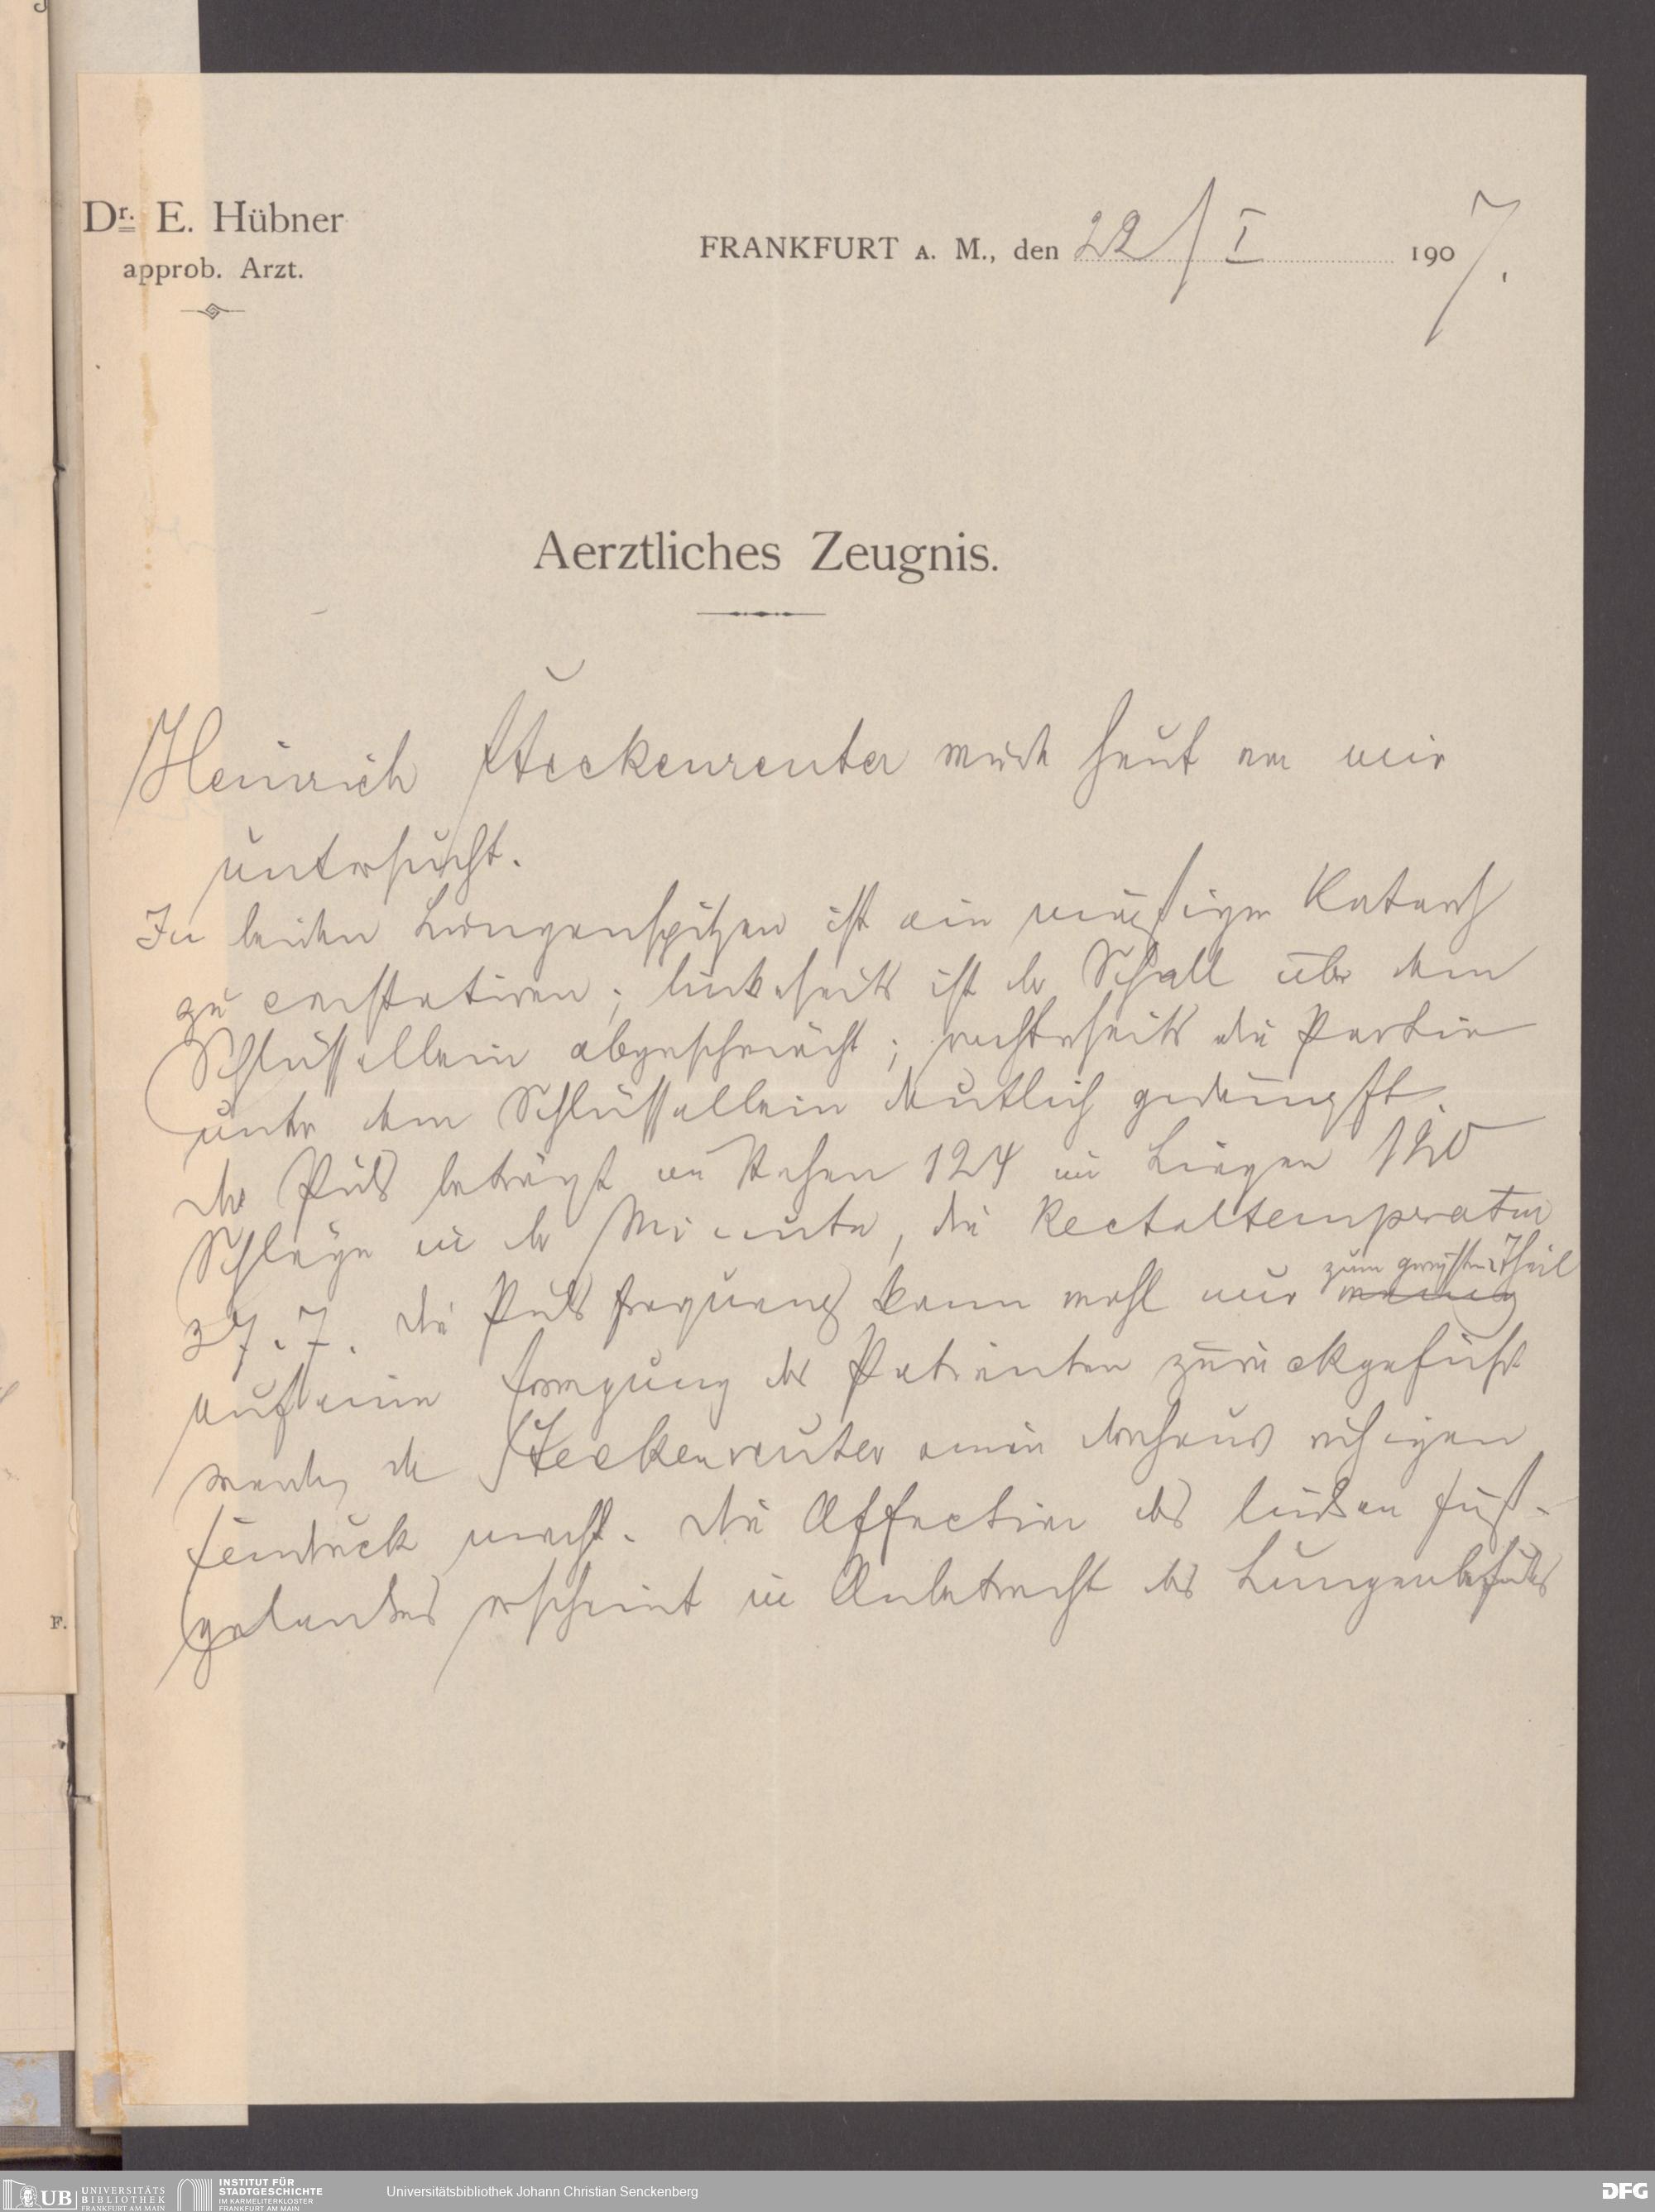 Dr. E. Hübner
approb. Arzt.
FRANKFURT A. M., den 22/I 1907.
Aerztliches Zeugnis.
Heinrich Steckenreuter wurde heut von mir
untersucht.
In beiden Lungenspitzen ist ein mäßiger Katarrh
zu constatiren; linkerseits ist der Schall über dem
Schlüsselbein abgeschwächt; rechterseits die Partie
unter dem Schlüsselbein deutlich gedämpft.
Der Puls beträgt im Stehen 124 im Liegen 120
Schläge in der Minute, die Rectaltemperatur
37.7. Die Pulsfrequenz kann wohl nur zum Theil
auf eine Erregung des Patienten zurückgeführt
werden, da Steckenreuter einen durchaus ruhigen
Eindruck macht. Die Affection des linken Fuß-
gelenkes erscheint in Anbetracht des Lungenbefundes
F.
UB UNIVERSITÄTS
BIBLIOTHEK
FRANKFURT AM MAIN
INSTITUT FÜR
STADTGESCHICHTE
IM KARMELITERKLOSTER
FRANKFURT AM MAIN
Universitätsbibliothek Johann Christian Senckenberg
DFG